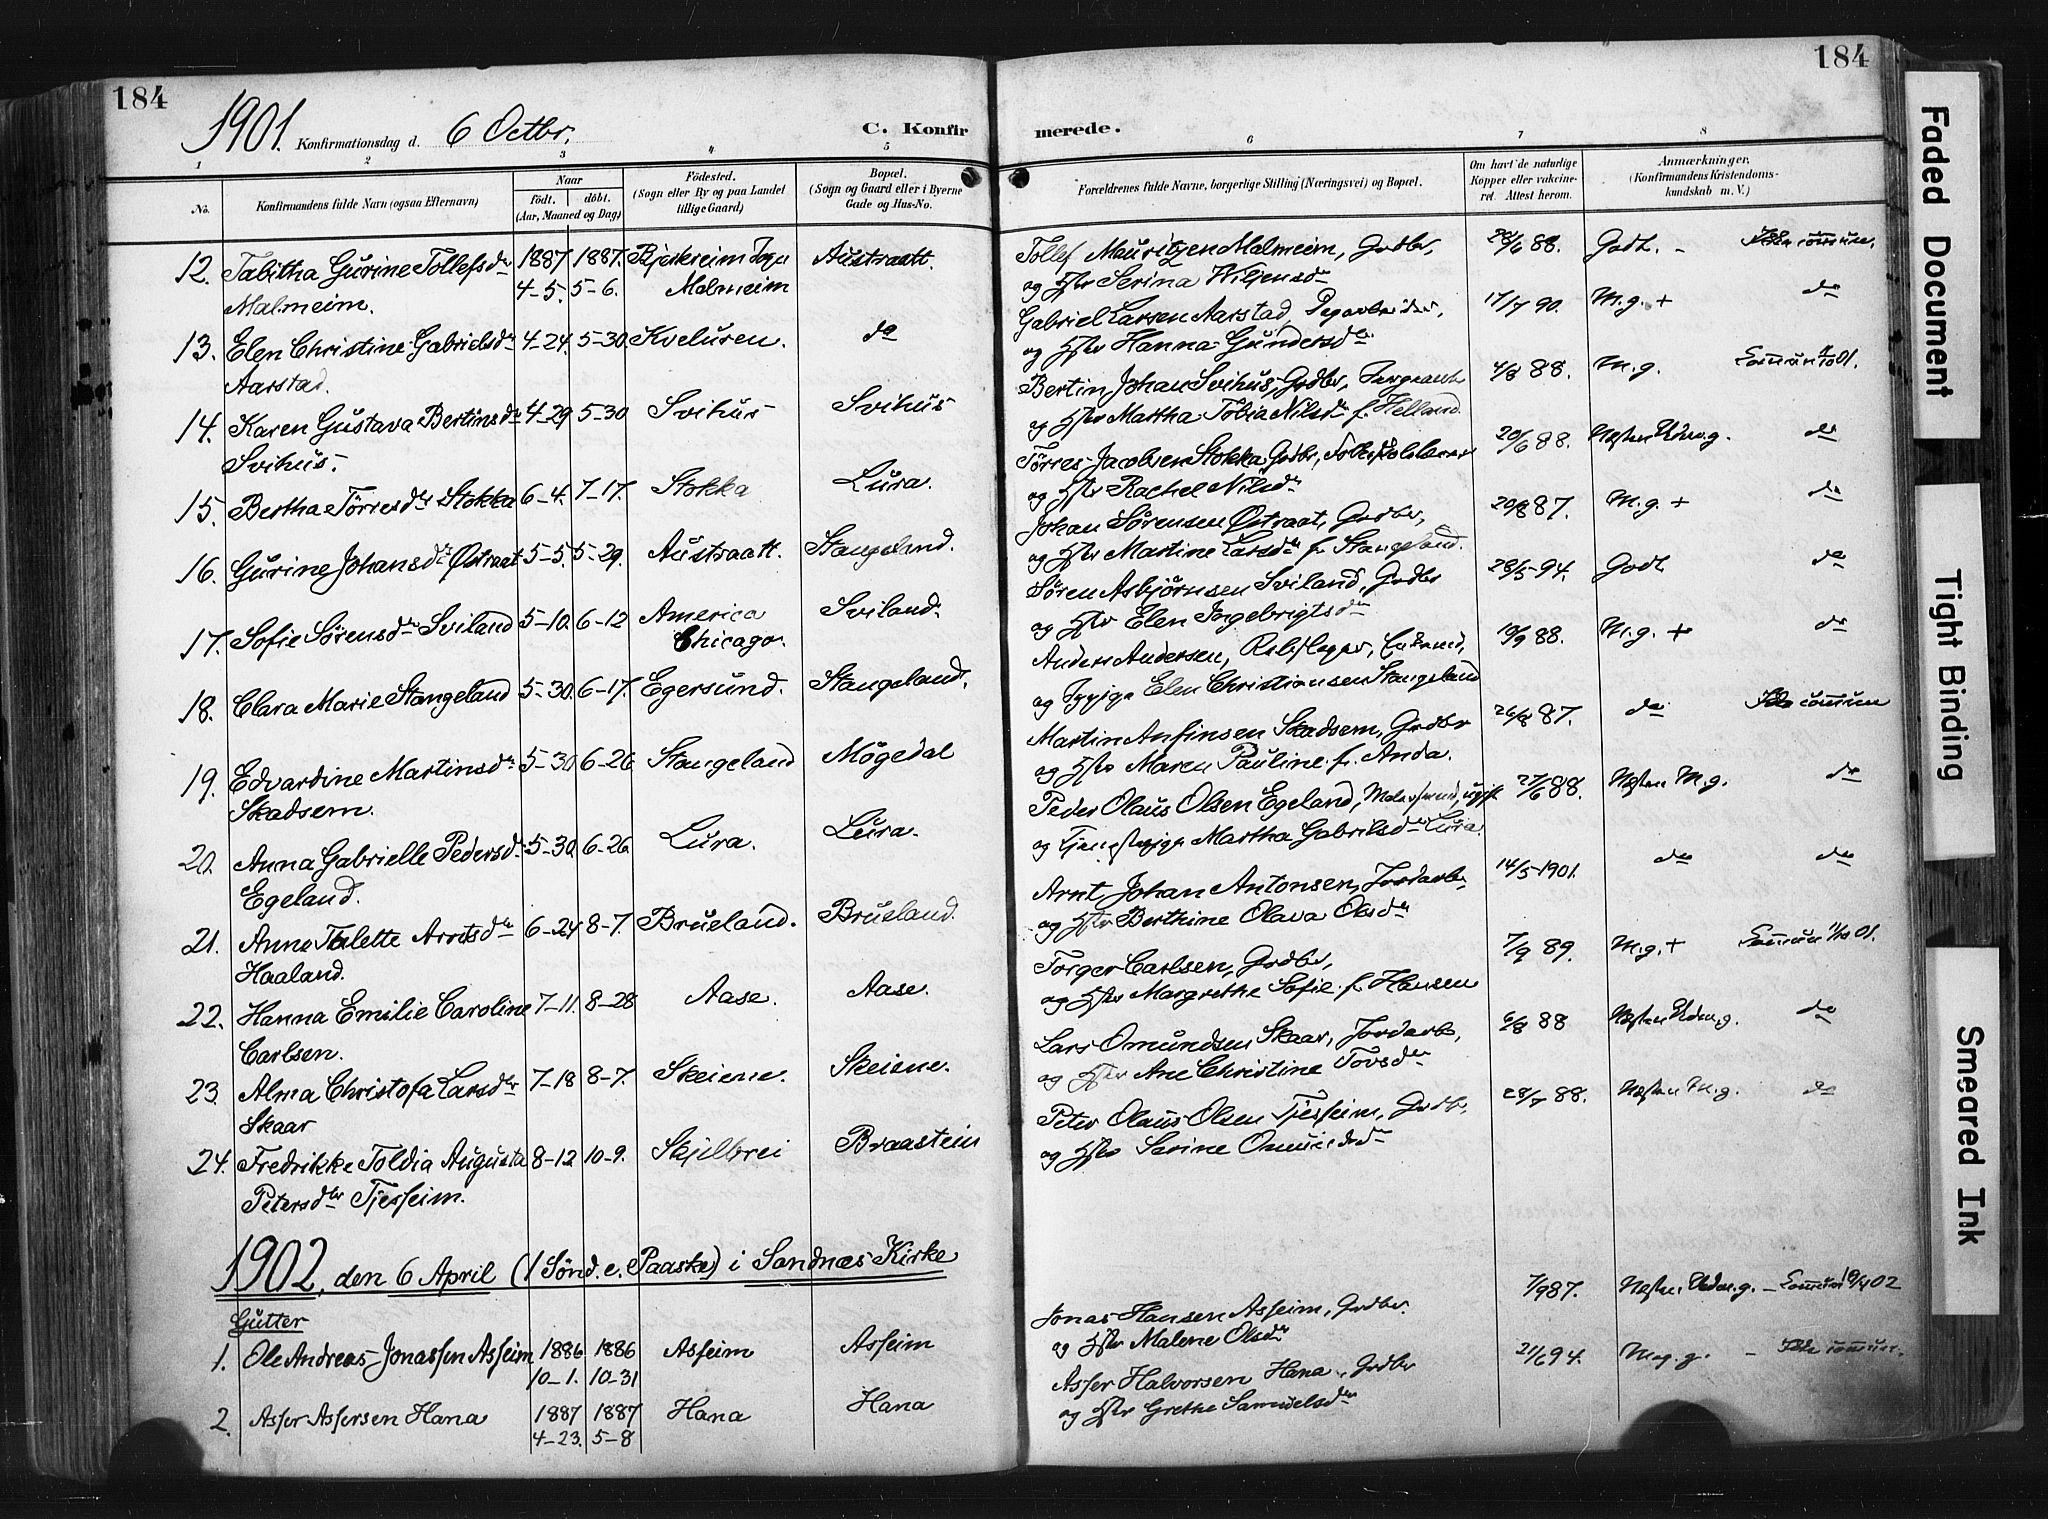 184
1901. Konfirmationsdag d. 6 Octbr. C. Konfir
1 2 3 4 5
No. Konfirmandens fulde Navn (ogsaa Efternavn) Naar født. døbt. (Aar, Maaned og Dag) Fødested. (Sogn eller By og paa Landet tillige Gaard) Bopæl. (Sogn og Gaard eller i Byerne Gade og Hus-No.
12. Tabitha Gurine Tollefsdr 1887 1887. Bjerkreim Sogn Austraatt.
Malmeim. 4-5. 5-6. Malmeim
13. Elen Christine Gabrielsdr 4-24. 5-30. Kveluren. do
Aarstad.
14. Karen Gustava Bertinsdr 4-29 5-30 Svihus Svihus
Svihus.
15. Bertha Tørresdr Stokka 6-4. 7-17. Stokka Lura.
16. Gurine Johansdr Østraat 5-5. 5-29. Austraatt. Stangeland.
17. Sofie Sørensdr Sviland 5-10. 6-12 America Sviland.
Chicago.
18. Clara Marie Stangeland 5-30. 6-17. Egersund. Stangeland.
19. Edvardine Martinsdr 5-30 6-26 Stangeland Møgedal
Skadsem.
20. Anna Gabrielle Pedersdr 5-30. 6-26 Lura. Lura.
Egeland.
21. Anne Talette Arntsdr 6-24 8-7. Brueland. Brueland.
Haaland.
22. Hanna Emilie Caroline 7-11. 8-28 Aase. Aase.
Carlsen.
23. Alma Christofa Larsdtr 7-18 8-7. Skeiene. Skeiene.
Skaar
24. Fredrikke Toldia Augusta 8-12 10-9. Skjelbrei Braastein
Petersdtr Tjesseim.
1902, den 6 April (1 Sønd. e. Paaske) i Sandnæs Kirke
Gutter
1. Ole Andreas Jonassen Asseim 1886 1886 Asseim Asseim
10-1. 10-31
2. Asser Assersen Hana 1887 1887 Hana Hana
4-23. 5-8
184
merede.
6 7 8
Forældrenes fulde Navne, borgerlige Stilling (Næringsvei) og Bopæl. Om havt de naturlige Kopper eller vakcineret. Attest herom. Anmærkninger. (Konfirmandens Kristendomskundskab m. V.)
Tollef Mauritzen Malmeim, Grdbr, 88. Godt. -
og Hstr Serina Wiljensdr
Gabriel Larsen Aarstad, 17/7 90. M.g. + do
og Hstr Hanna Gundersdr
Bertin Johan Svihus, Grdbr, 4/8 88. M.g. 01.
og Hstr Martha Tobia Nilsdr f. Helland.
Tørres Jacobsen Stokka Grdbr, 20/6 88. Næsten Udm.g. do
og Hstr Rachel Nilsdr
Johan Sørensen Østraat, Grdbr, 20/8 87. M.g. + do
og Hstr Martine Larsdr f. Stangeland.
Søren Asbjørnsen Sviland, Grdbr 28/5-94. Godt. do
og Hstr Elen Ingebrigtsdr
Anders Andersen, 19/9 88. M.g. + do
og Elen Christiansen Stangeland
Martin Anfinsen Skadsem, Grdbr 26/8 87. do
og Hstr Maren Pauline f. Anda.
Peder Olaus Olsen Egeland, 27/6 88. Næsten M.g. do
og Martha Gabrielsdr Lura
Arnt Johan Antonsen, Jordarb, 14/5-1901. do do
og Hstr Berthine Olava Olsdr
Torger Carlsen, Grdbr, 7/9 89. M.g. + 11/10 01.
og Hstr Margrethe Sofie f. Hansen
Lars Omundsen Skaar, Jordarb, 6/8 88 Næsten Udm.g. do
og Hstr Ane Christine Tovsdr
Peter Olaus Olsen Tjesseim, Grdb, 28/7 88. Næsten M.g. do
og Hstr Serine Omundsdr
7/9 87. Næsten Udm.g. - 02
Jonas Hansen Asseim, Grdbr.
og Hstr Malene Olsdr
Asser Halvorsen Hana, Grdbr 21/6 94. Meg. g. -
og Hstr Grethe Samuelsdr
Faded Document
Tight Binding
Smeared Ink